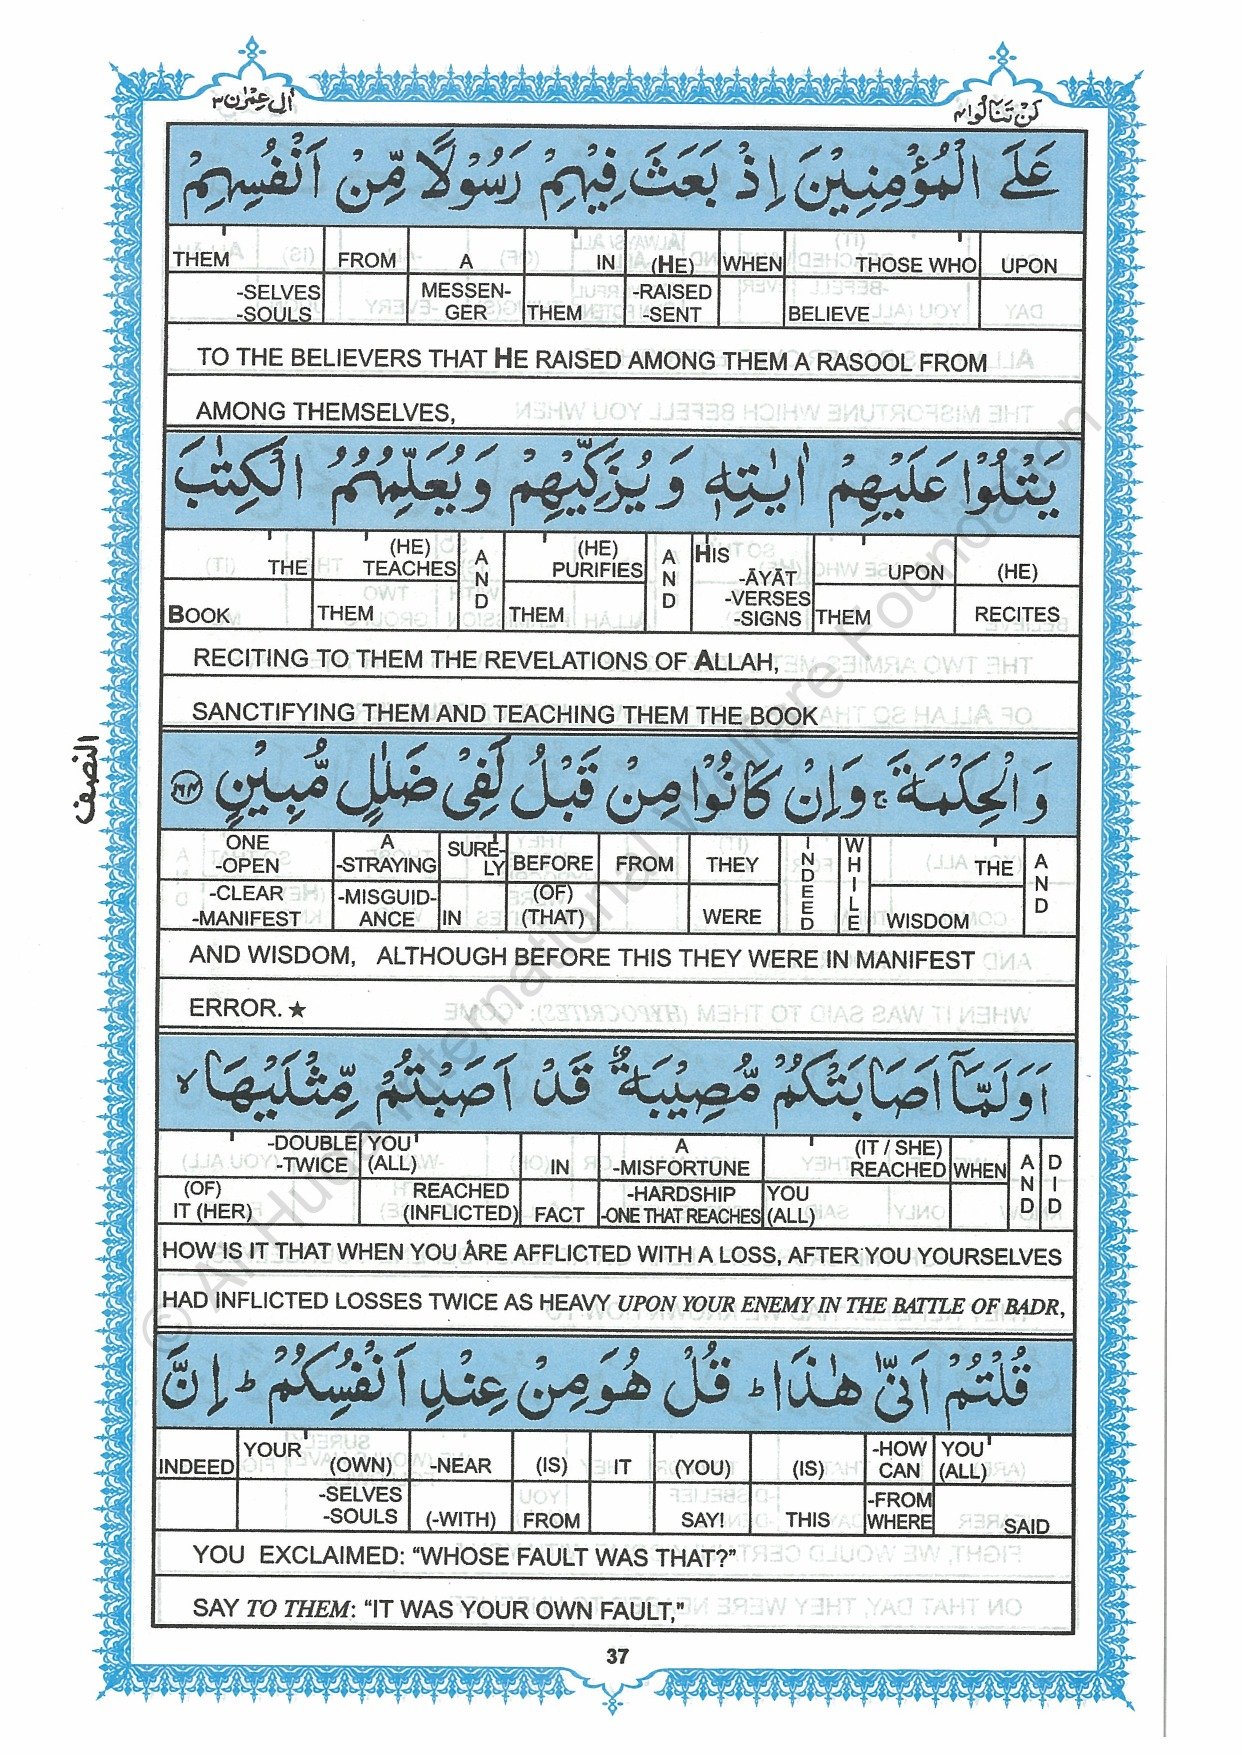 اٰل عِمْرٰن ٣
لَنْ تَنَالُوا ٤
عَلَى الْمُؤْمِنِيْنَ اِذْ بَعَثَ فِيْهِمْ رَسُوْلًا مِّنْ اَنْفُسِهِمْ
THEM FROM A IN (HE) WHEN THOSE WHO UPON
-SELVES -SOULS MESSEN-GER THEM -RAISED -SENT BELIEVE
TO THE BELIEVERS THAT HE RAISED AMONG THEM A RASOOL FROM
AMONG THEMSELVES,
يَتْلُوْا عَلَيْهِمْ اٰيٰتِهٖ وَ يُزَكِّيْهِمْ وَ يُعَلِّمُهُمُ الْكِتٰبَ
THE (HE) TEACHES AND (HE) PURIFIES AND HIS -ĀYĀT -VERSES -SIGNS UPON (HE)
BOOK THEM THEM THEM RECITES
RECITING TO THEM THE REVELATIONS OF ALLAH,
SANCTIFYING THEM AND TEACHING THEM THE BOOK
النصف
وَ الْحِكْمَةَ ۚ وَ اِنْ كَانُوْا مِنْ قَبْلُ لَفِيْ ضَلٰلٍ مُّبِيْنٍ ١٦٤
ONE -OPEN A -STRAYING SURE-LY BEFORE FROM THEY INDEED WHILE THE AND
-CLEAR -MANIFEST -MISGUID-ANCE IN (OF) (THAT) WERE WISDOM
AND WISDOM, ALTHOUGH BEFORE THIS THEY WERE IN MANIFEST
ERROR. ★
اَوَ لَمَّاۤ اَصَابَتْكُمْ مُّصِيْبَةٌ قَدْ اَصَبْتُمْ مِّثْلَيْهَا ۙ
-DOUBLE -TWICE YOU (ALL) IN A -MISFORTUNE (IT / SHE) REACHED WHEN AND DID
(OF) IT (HER) REACHED (INFLICTED) FACT -HARDSHIP -ONE THAT REACHES YOU (ALL)
HOW IS IT THAT WHEN YOU ARE AFFLICTED WITH A LOSS, AFTER YOU YOURSELVES
HAD INFLICTED LOSSES TWICE AS HEAVY UPON YOUR ENEMY IN THE BATTLE OF BADR,
قُلْتُمْ اَنّٰى هٰذَا ؕ قُلْ هُوَ مِنْ عِنْدِ اَنْفُسِكُمْ ؕ اِنَّ
INDEED YOUR (OWN) -NEAR (IS) IT (YOU) (IS) -HOW CAN YOU (ALL)
-SELVES -SOULS (-WITH) FROM SAY! THIS -FROM WHERE SAID
YOU EXCLAIMED: “WHOSE FAULT WAS THAT?”
SAY TO THEM: “IT WAS YOUR OWN FAULT,”
37
© An Huda International Welfare Foundation